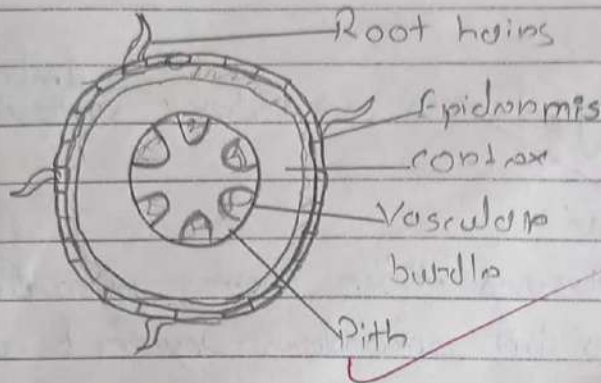 Root hairs
Epidermis
cortex
Vascular
bundle
Pith